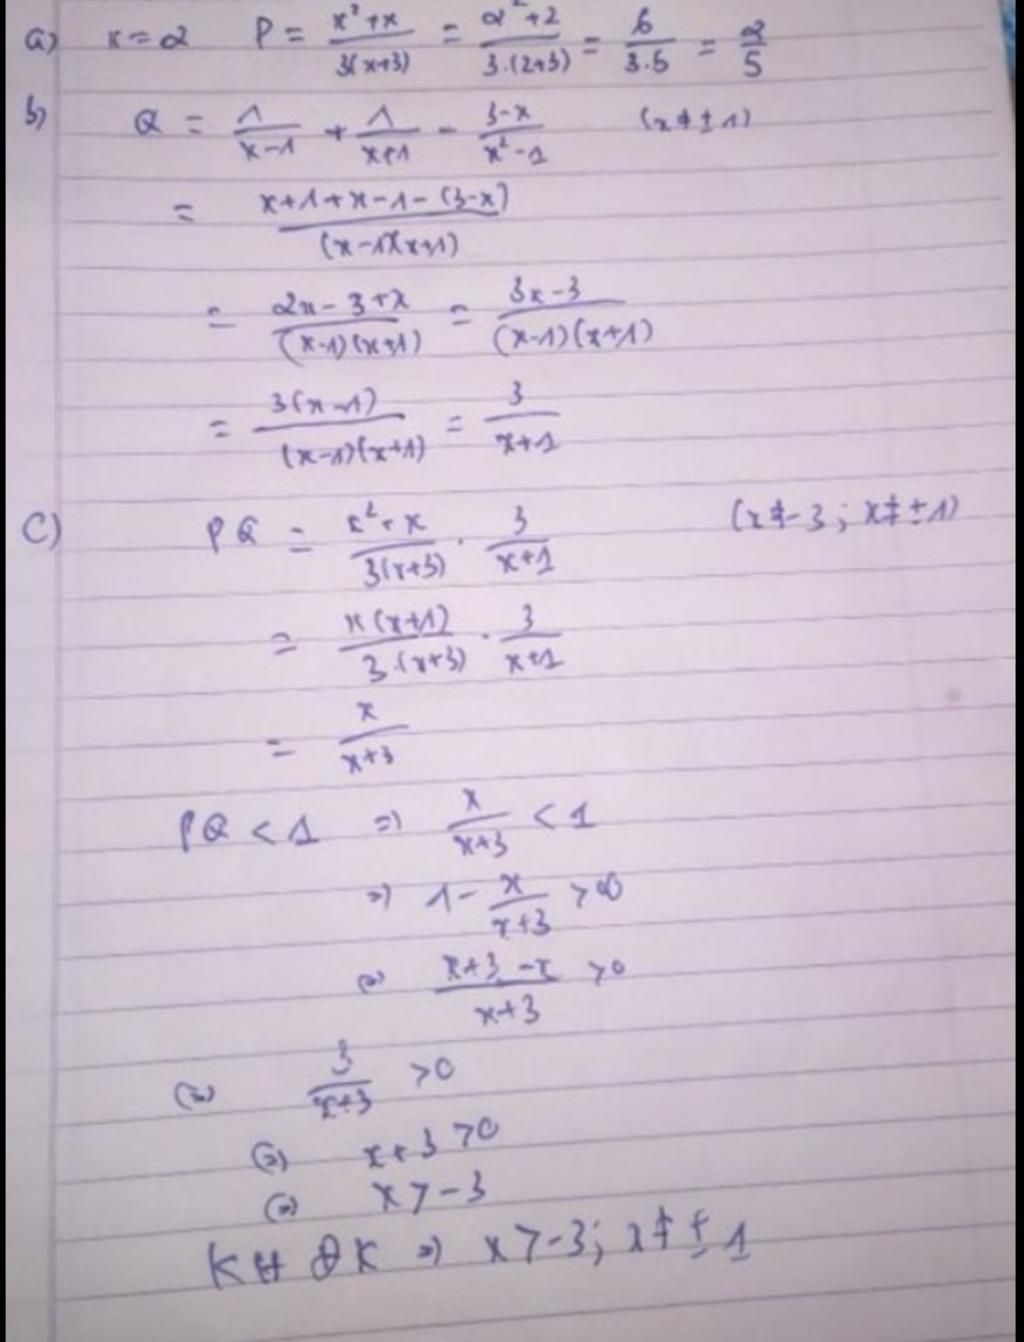 a) x = 2 P = \frac{x^2+x}{3(x+3)} = \frac{2^2+2}{3.(2+3)} = \frac{6}{3.5} = \frac{2}{5}
b) Q = \frac{1}{x-1} + \frac{1}{x+1} - \frac{3-x}{x^2-1} (x ≠ ± 1)
= \frac{x+1+x-1-(3-x)}{(x-1)(x+1)}
= \frac{2x-3+x}{(x-1)(x+1)} = \frac{3x-3}{(x-1)(x+1)}
= \frac{3(x-1)}{(x-1)(x+1)} = \frac{3}{x+1}
C) PQ = \frac{x^2+x}{3(x+3)} . \frac{3}{x+1} (x ≠ -3; x ≠ ± 1)
= \frac{x(x+1)}{3.(x+3)} . \frac{3}{x+1}
= \frac{x}{x+3}
PQ < 1 => \frac{x}{x+3} < 1
=> 1 - \frac{x}{x+3} > 0
<=> \frac{x+3-x}{x+3} > 0
<=> \frac{3}{x+3} > 0
<=> x + 3 > 0
<=> x > -3
KH ĐK => x > -3; x ≠ ± 1